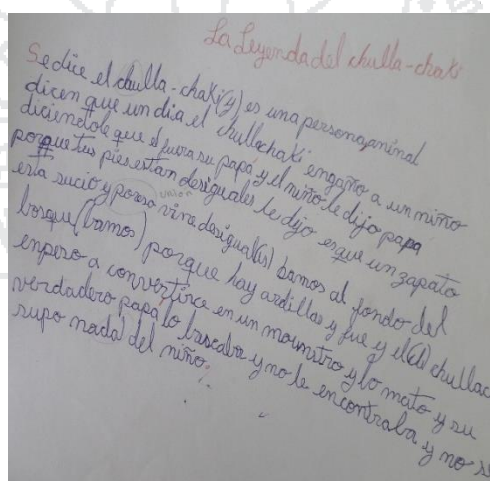 La Leyenda del chulla-chaki
Se dice el chulla-chaki(y) es una persona,aninal
dicen que un dia el chullachaki engaño a un niño
diciendole que el fuera su papá y el niño le dijo papa
porque tus pies estan desiguales le dijo esque un zapato
union
esta sucio y poreso vine desigual(is) bamos al fondo del
bosque (bamos) porque hay ardillas y fue y el(a) chullac
enpeso a convertirce en un mounstro y lo mato y su
verdadero papá lo buscaba y no le encontraba y no s
supo nada del niño.